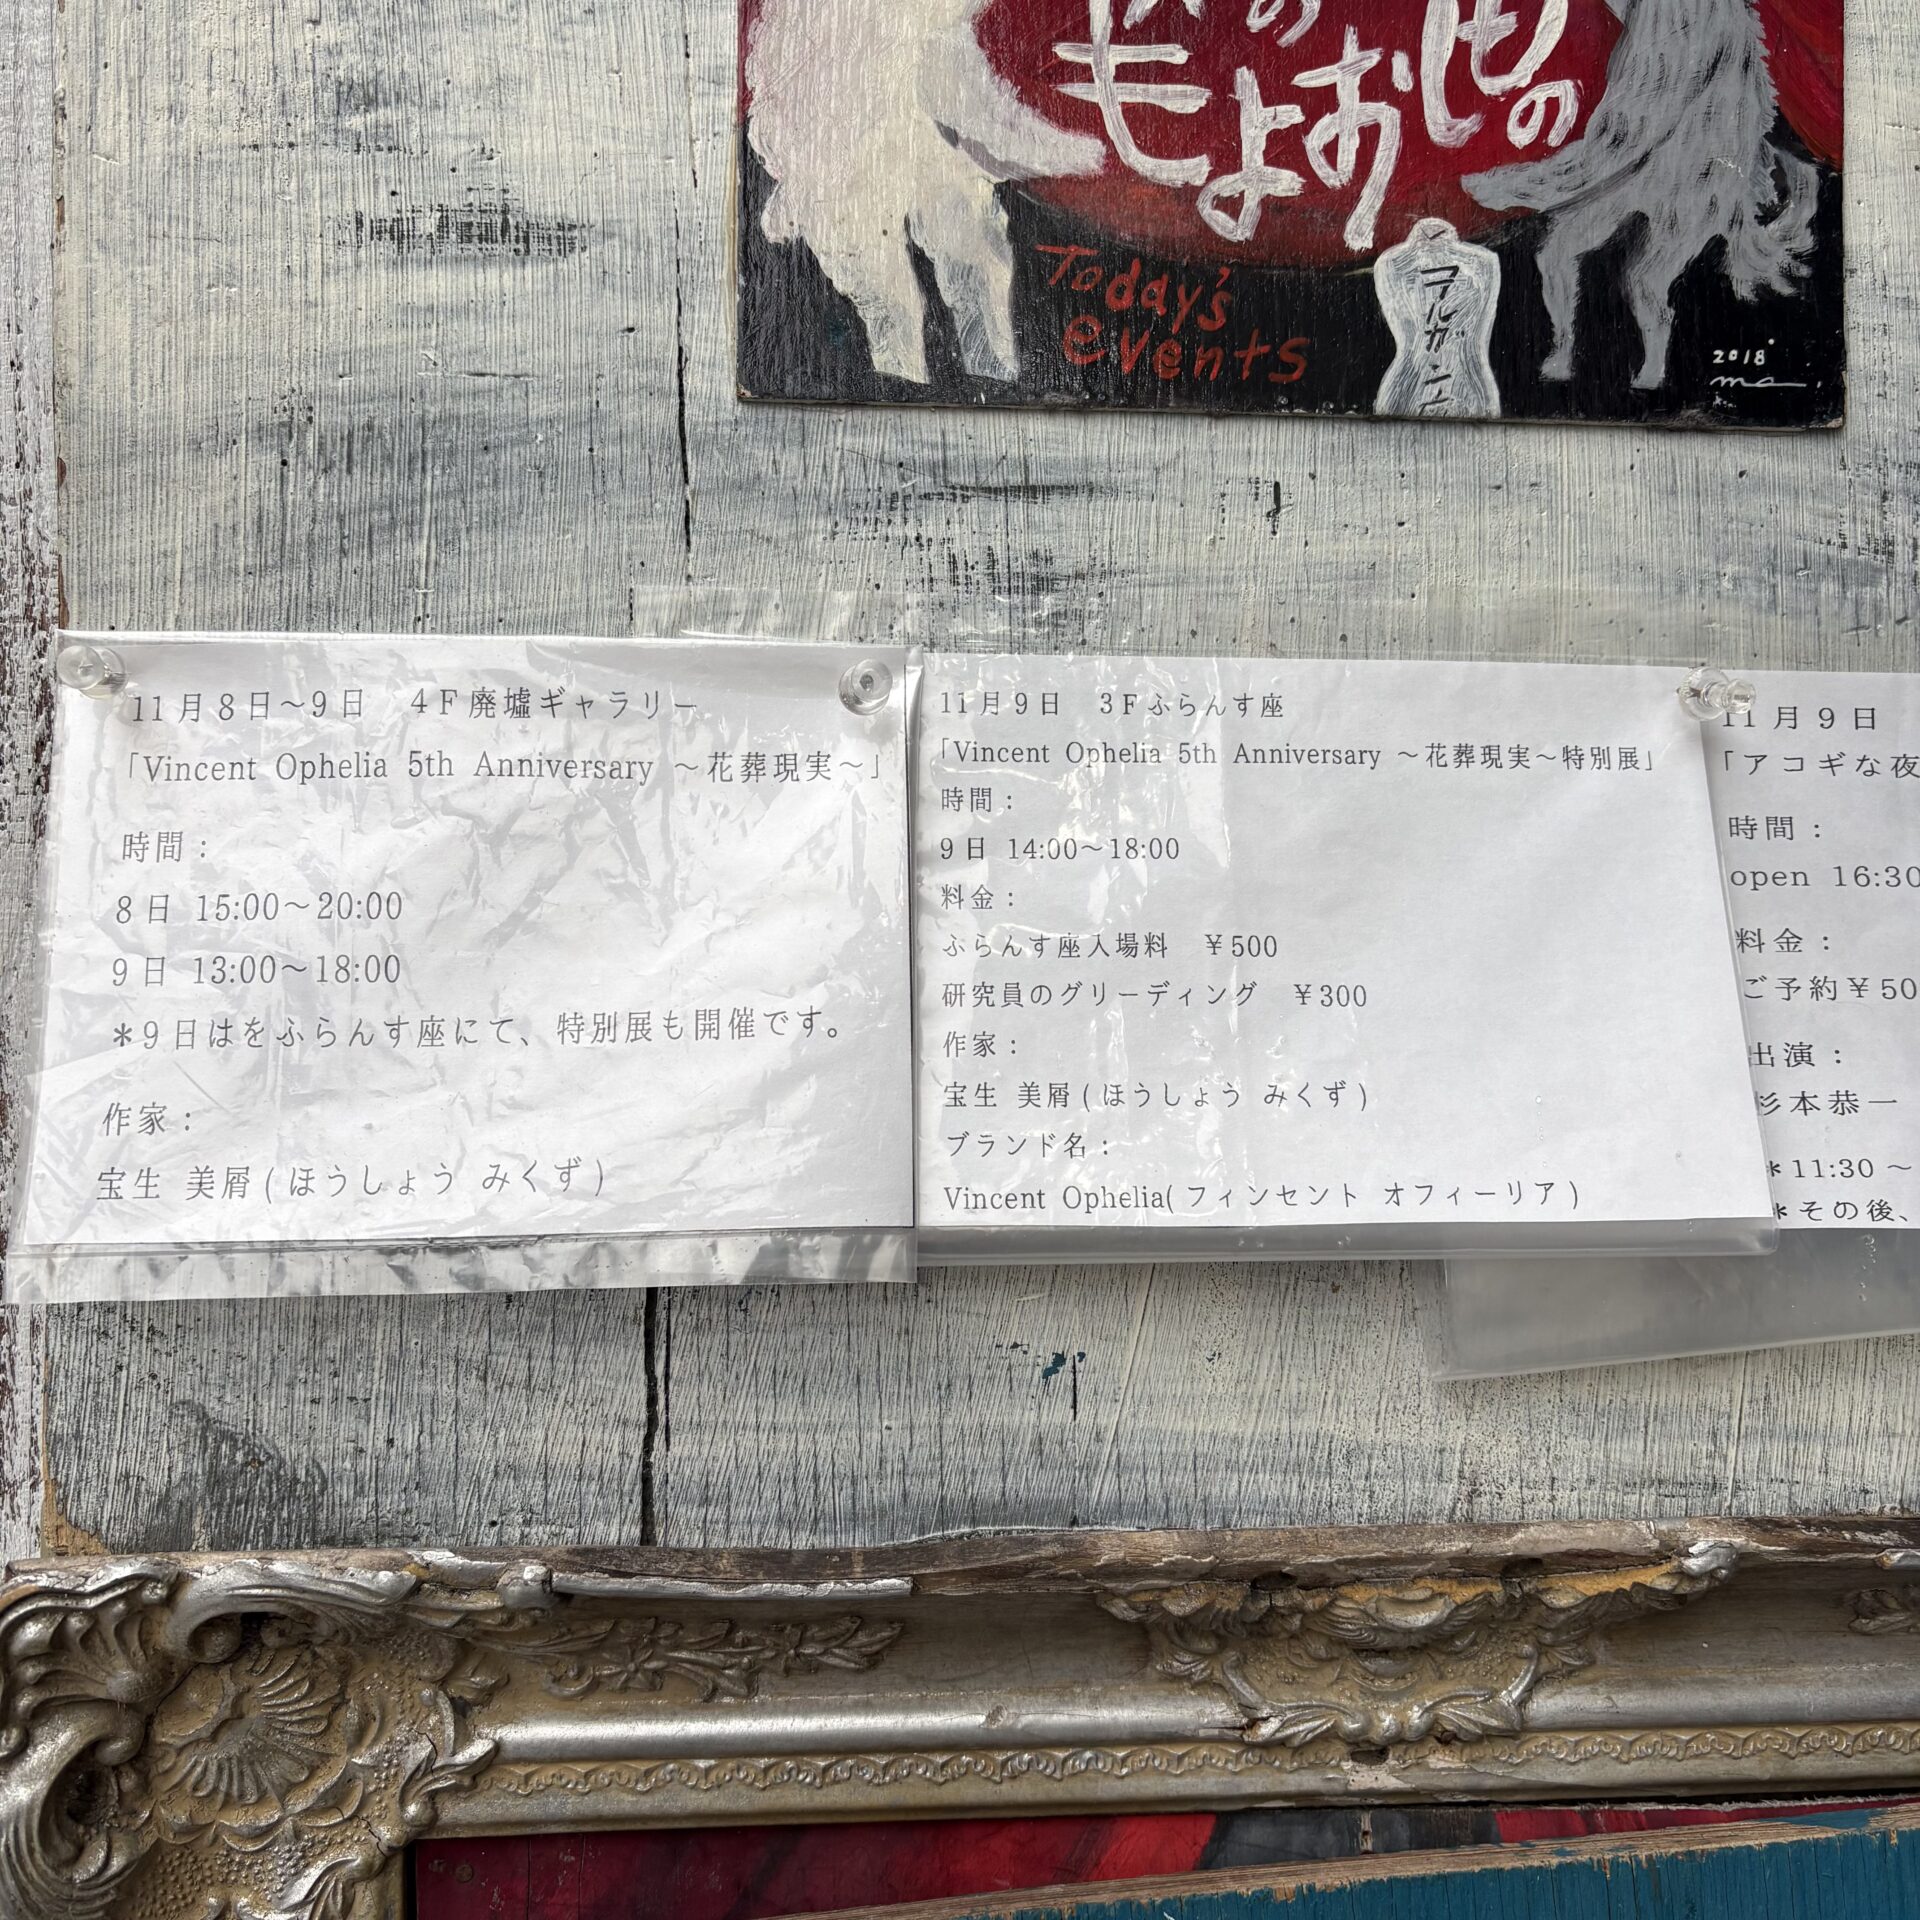 の
もよおしもの
Today's
events
マルガ
2018
ma.
11月8日～9日　4F廃墟ギャラリー
「Vincent Ophelia 5th Anniversary ～花葬現実～」
時間：
8日 15:00～20:00
9日 13:00～18:00
＊9日はをふらんす座にて、特別展も開催です。
作家：
宝生 美屑(ほうしょう みくず)
11月9日　3Fふらんす座
「Vincent Ophelia 5th Anniversary ～花葬現実～特別展」
時間：
9日 14:00～18:00
料金：
ふらんす座入場料　￥500
研究員のグリーディング　￥300
作家：
宝生 美屑(ほうしょう みくず)
ブランド名：
Vincent Ophelia(フィンセント オフィーリア)
11月9日
「アコギな夜
時間：
open 16:30
料金：
ご予約￥50
出演：
杉本恭一
＊11:30～
＊その後、